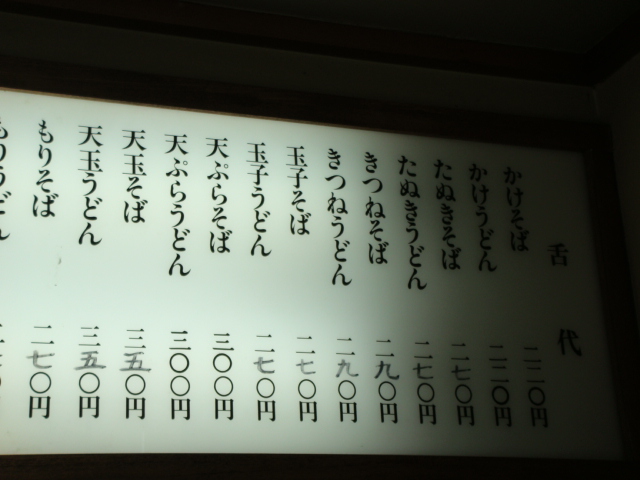 舌代
かけそば 二二〇円
かけうどん 二二〇円
たぬきそば 二七〇円
たぬきうどん 二七〇円
きつねそば 二九〇円
きつねうどん 二九〇円
玉子そば 二七〇円
玉子うどん 二七〇円
天ぷらそば 三〇〇円
天ぷらうどん 三〇〇円
天玉そば 三五〇円
天玉うどん 三五〇円
もりそば 二七〇円
もりうどん